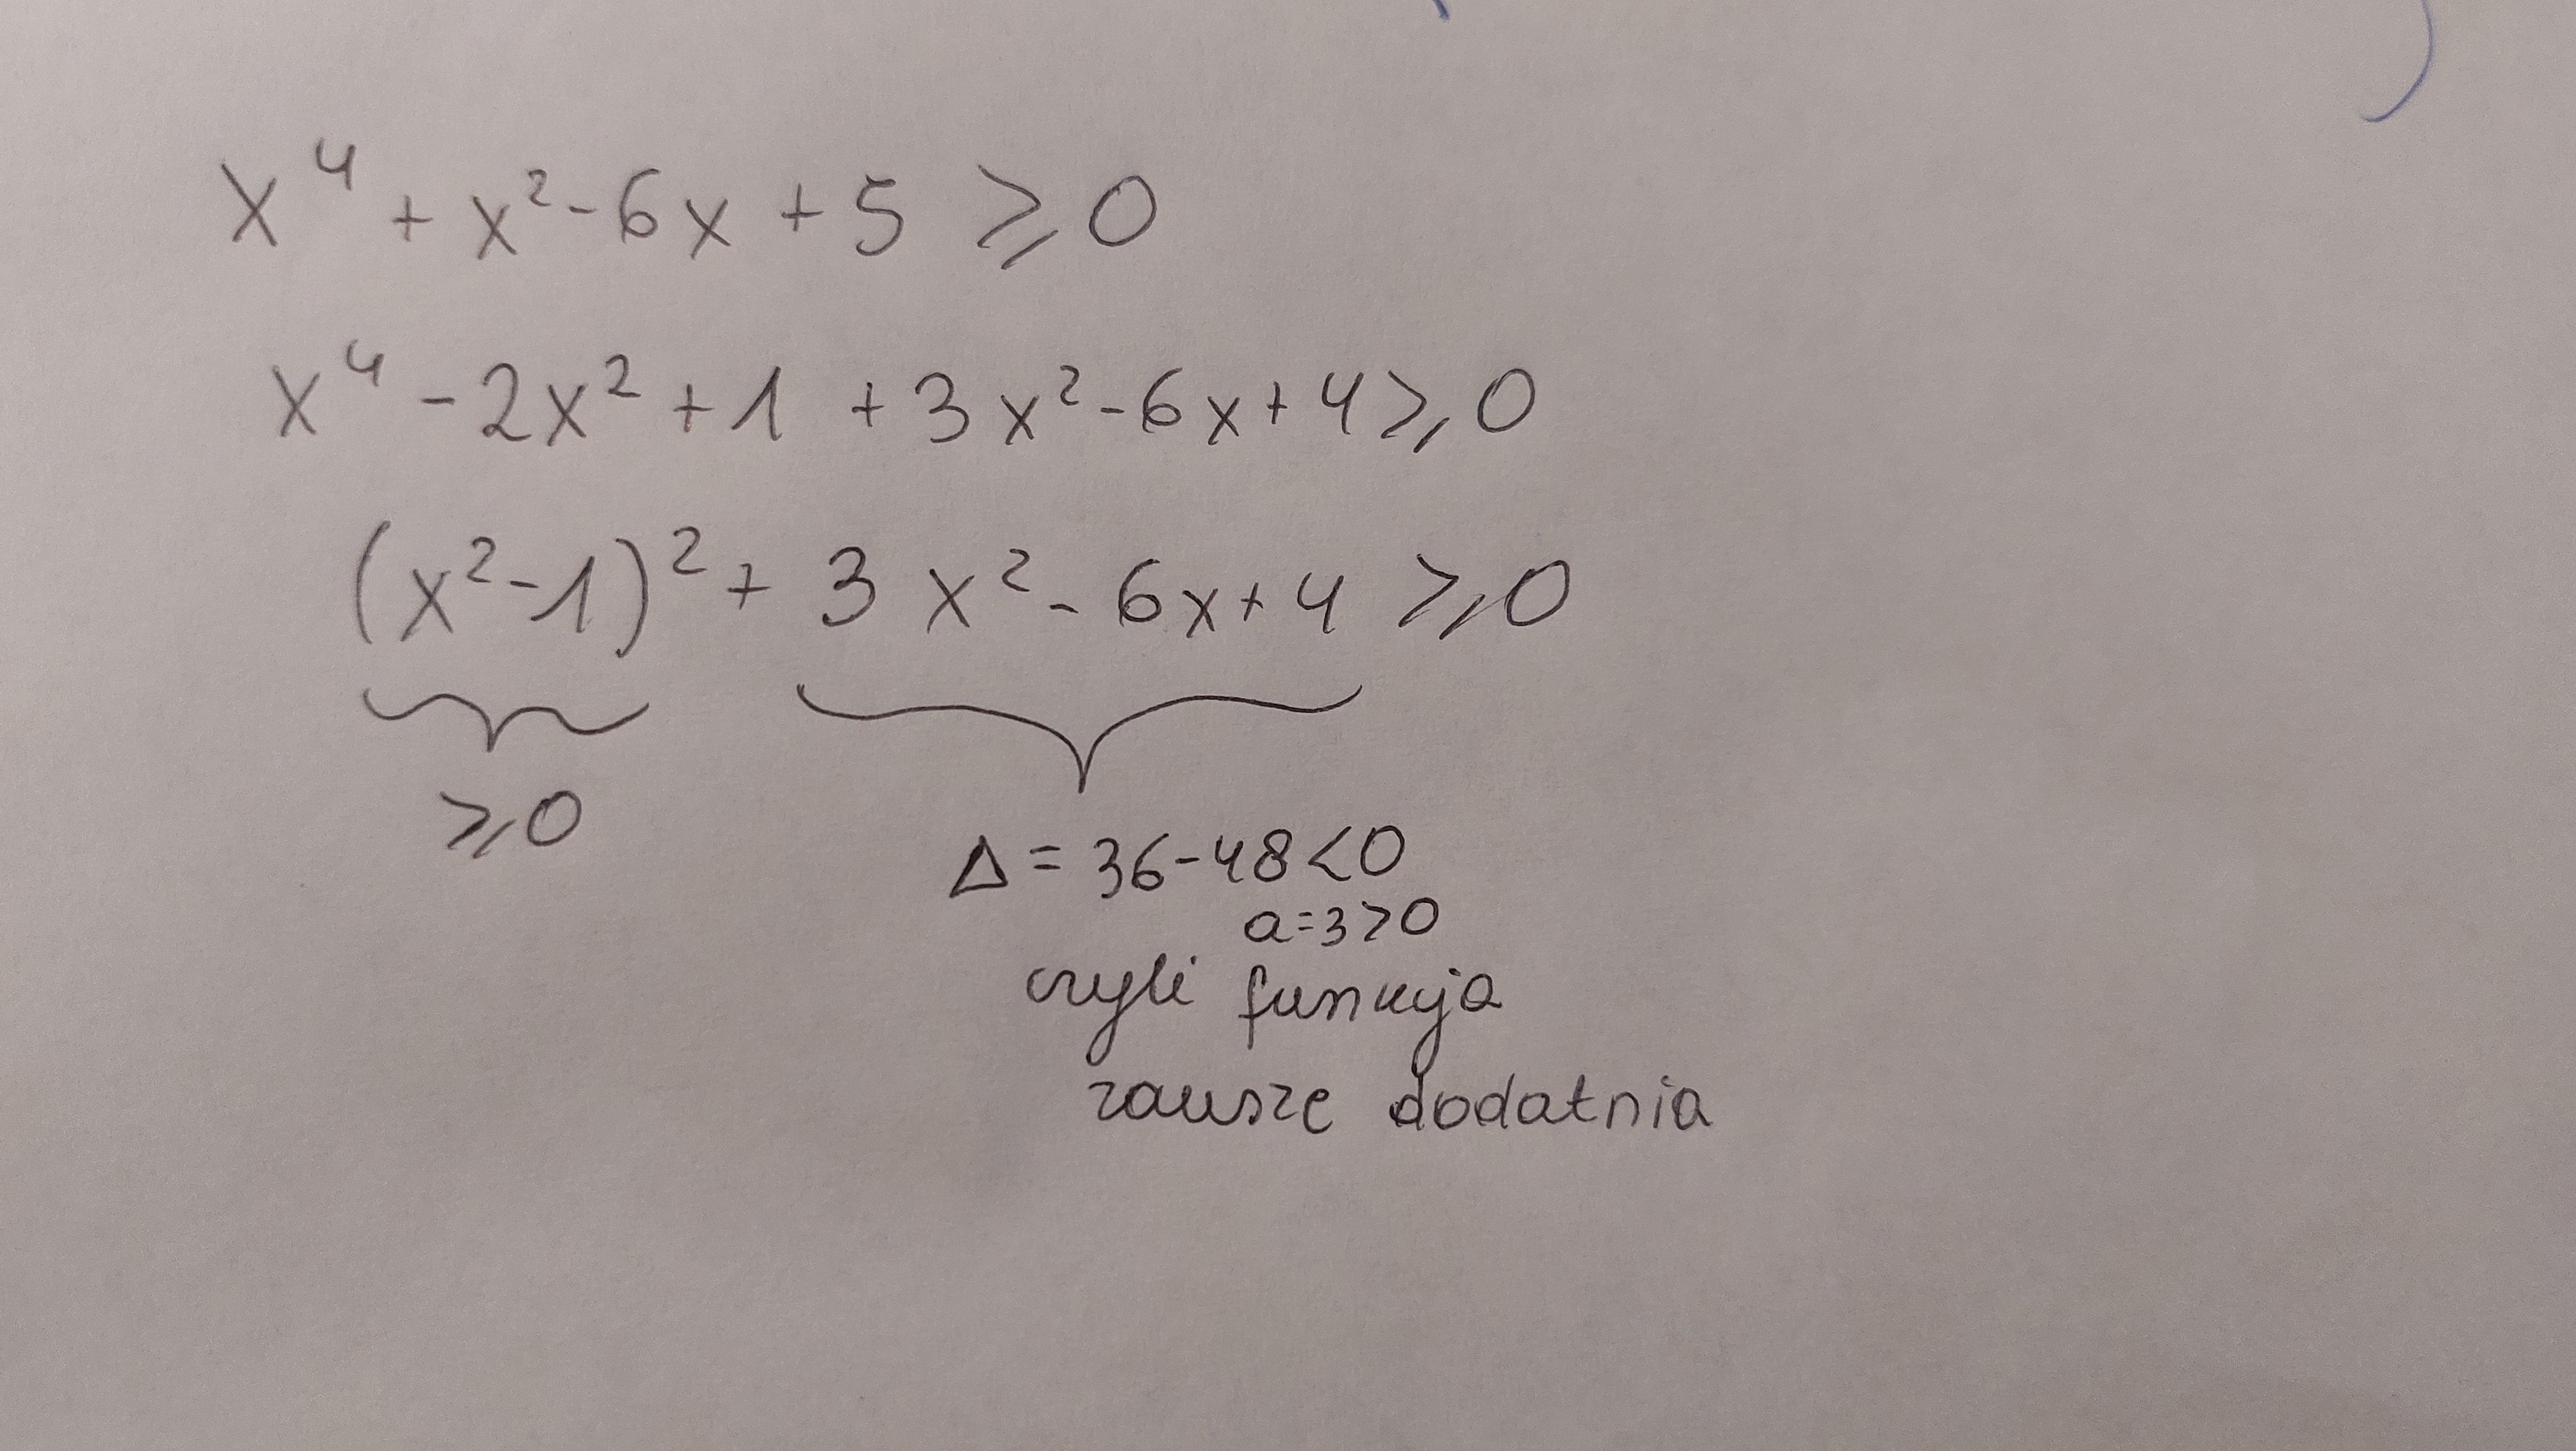 x⁴ + x² - 6x + 5 ⩾ 0
x⁴ - 2x² + 1 + 3x² - 6x + 4 ⩾ 0
(x² - 1)² + 3x² - 6x + 4 ⩾ 0
⩾ 0
Δ = 36 - 48 < 0
a = 3 > 0
czyli funkcja
zawsze dodatnia